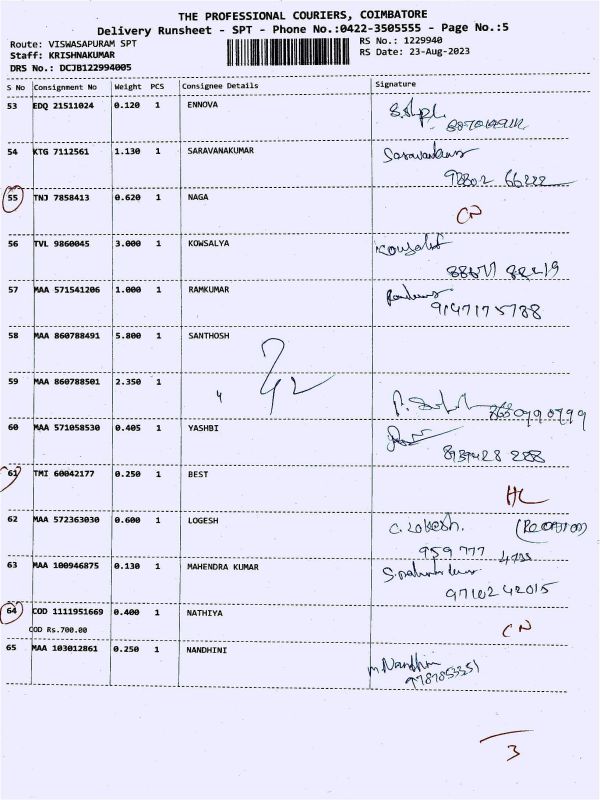 THE PROFESSIONAL COURIERS, COIMBATORE
Delivery Runsheet - SPT - Phone No.:0422-3505555 - Page No.:5
Route: VISWASAPURAM SPT RS No.: 1229940
Staff: KRISHNAKUMAR RS Date: 23-Aug-2023
DRS No.: DCJB122994005
S No Consignment No Weight PCS Consignee Details Signature
53 EDQ 21511024 0.120 1 ENNOVA
54 KTG 7112561 1.130 1 SARAVANAKUMAR Saravankumar
55 TNJ 7858413 0.620 1 NAGA CN
56 TVL 9860045 3.000 1 KOWSALYA
57 MAA 571541206 1.000 1 RAMKUMAR
58 MAA 860788491 5.800 1 SANTHOSH
59 MAA 860788501 2.350 1
60 MAA 571058530 0.405 1 YASHBI
61 TMI 60042177 0.250 1 BEST HL
62 MAA 572363030 0.600 1 LOGESH C. Lokesh.
63 MAA 100946875 0.130 1 MAHENDRA KUMAR
97102 42015
64 COD 1111951669 0.400 1 NATHIYA CN
COD Rs.700.00
65 MAA 103012861 0.250 1 NANDHINI M. Nandhini
3